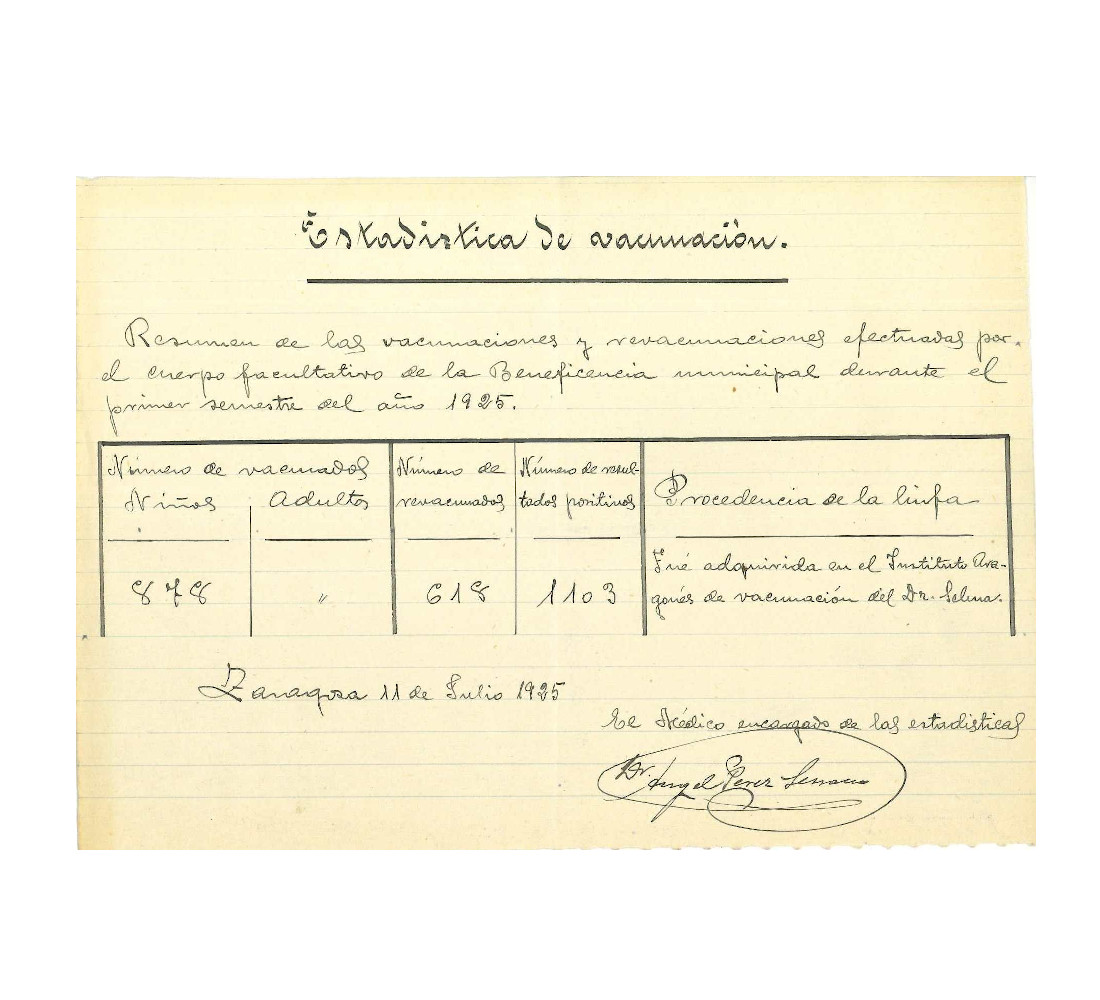 Estadistica de vacunación.
Resumen de las vacunaciones y revacunaciones efectuadas por
el cuerpo facultativo de la Beneficencia municipal durante el
primer semestre del año 1925.
Número de vacunados
Niños Adultos
Número de
revacunados
Número de resul-
tados positivos
Procedencia de la linfa
878 " 618 1103
Fué adquirida en el Instituto Ara-
gonés de vacunación del Dr. Selma.
Zaragoza 11 de Julio 1925
El Médico encargado de las estadisticas
Dr. Angel Perez Serrano